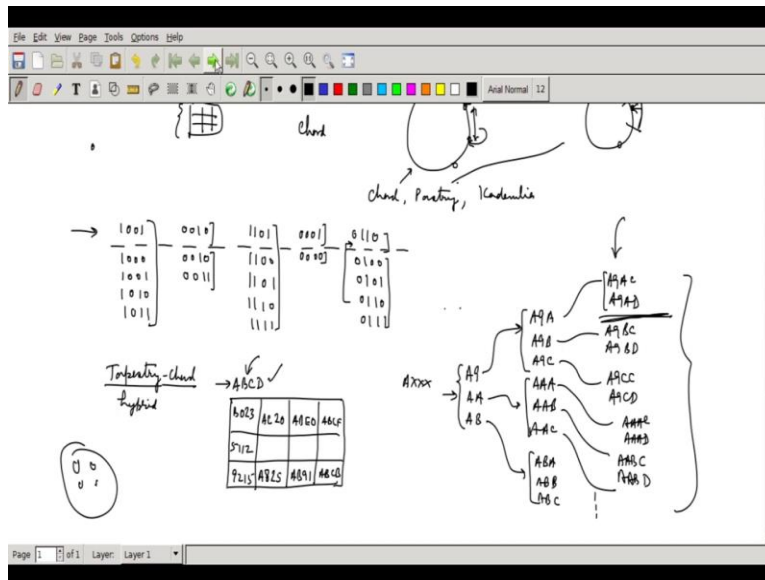 File Edit View Page Tools Options Help
T
Arial Normal 12
Chord
Chord, Pastry, Kademlia
1001 0010 1101 0001 0110
1000 0010 1100 0000 0100
1001 0011 1101 0101
1010 1110 0110
1011 1111 0111
Tapestry-Chord
hybrid
ABCD
B023 AC20 ABE0 ABCF
5712
9215 A825 AB91 ABCB
Axxx
A9
AA
AB
A9A
A9B
A9C
AAA
AAB
AAC
ABA
ABB
ABC
A9AC
A9AD
A9BC
A9BD
A9CC
A9CD
AAAC
AAAD
AABC
AABD
Page 1 of 1 Layer: Layer 1